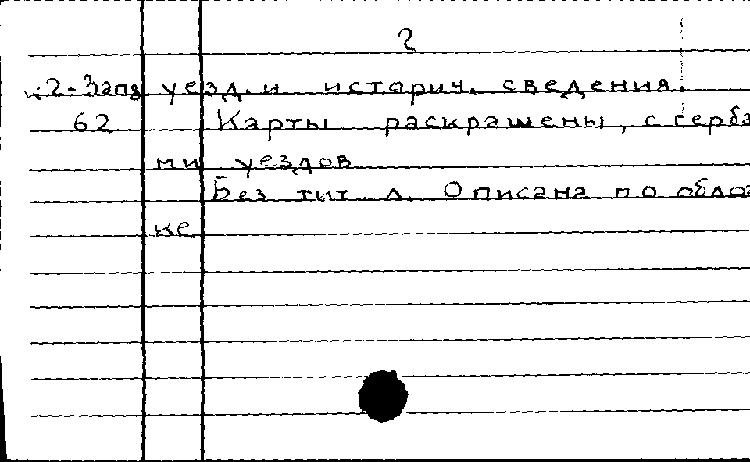 2
К2-Зап8 уезд. и историч. сведения.
62 Карты раскрашены, с герба
ми уездов
Без тит л. Описана по облож
ке